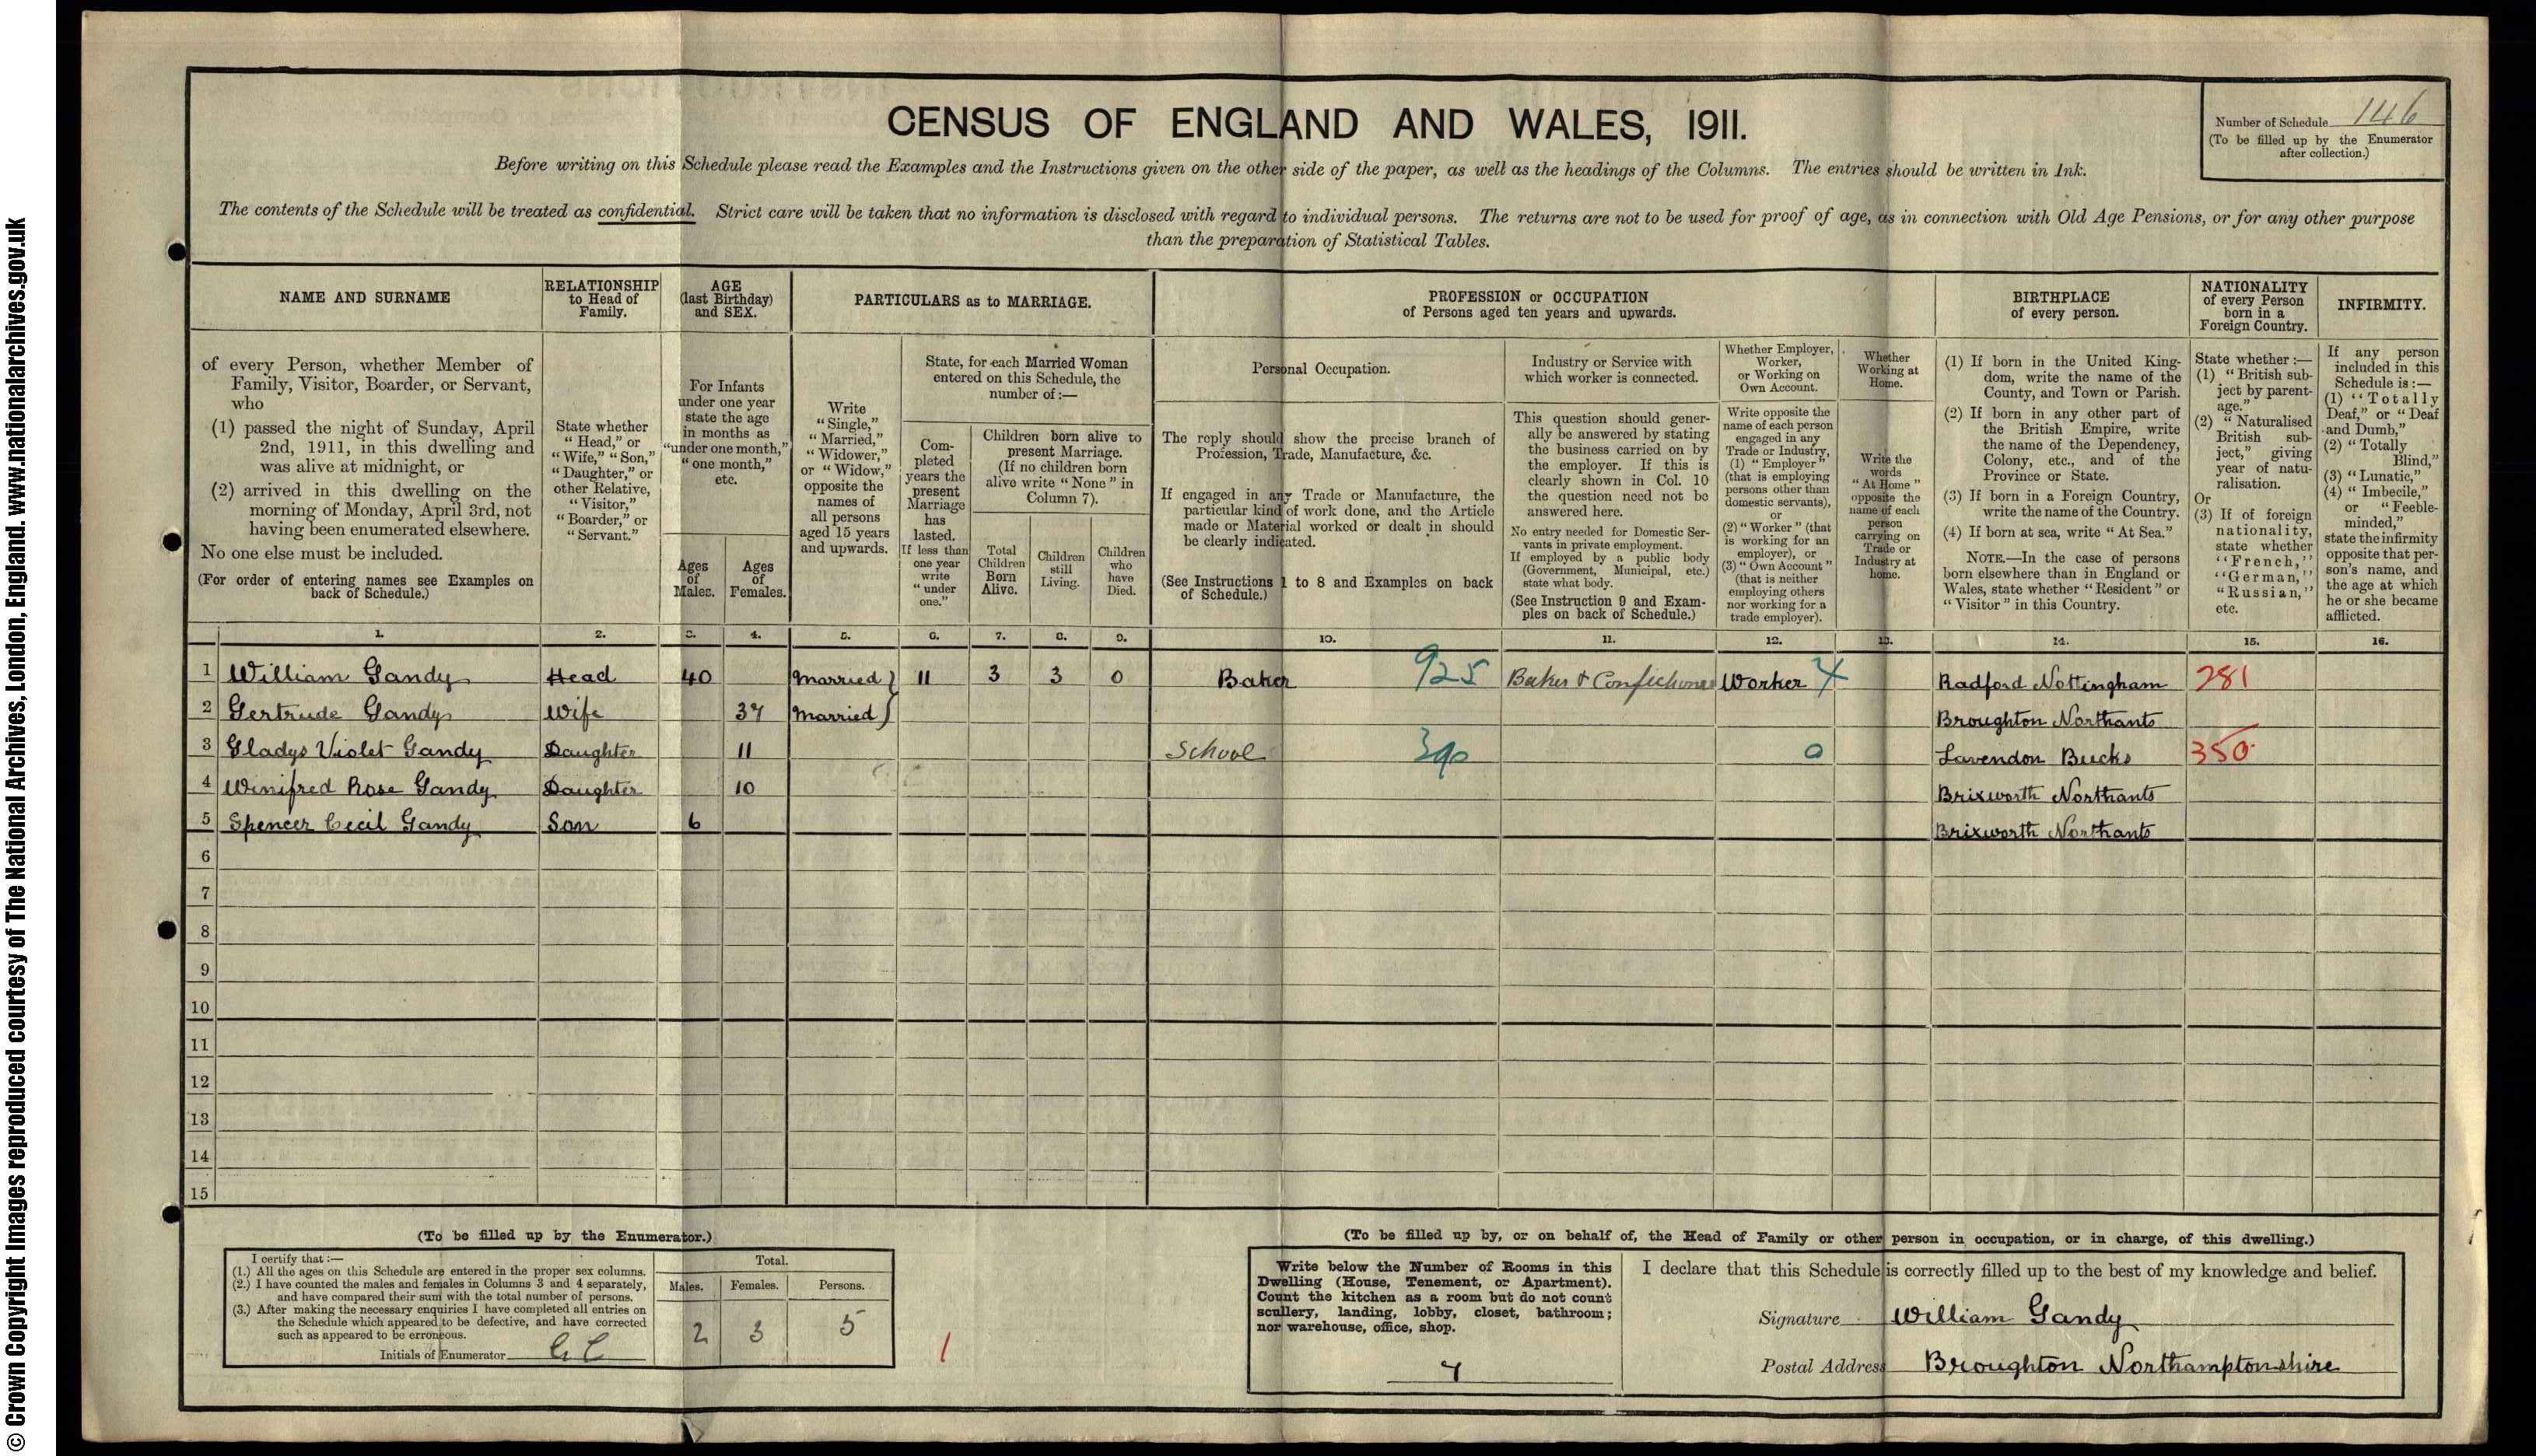 © Crown Copyright Images reproduced courtesy of The National Archives, London, England. www.nationalarchives.gov.uk
CENSUS OF ENGLAND AND WALES, 1911.
Number of Schedule 146
(To be filled up by the Enumerator
after collection.)
Before writing on this Schedule please read the Examples and the Instructions given on the other side of the paper, as well as the headings of the Columns. The entries should be written in Ink.
The contents of the Schedule will be treated as confidential. Strict care will be taken that no information is disclosed with regard to individual persons. The returns are not to be used for proof of age, as in connection with Old Age Pensions, or for any other purpose
than the preparation of Statistical Tables.
NAME AND SURNAME
of every Person, whether Member of
Family, Visitor, Boarder, or Servant,
who
(1) passed the night of Sunday, April
2nd, 1911, in this dwelling and
was alive at midnight, or
(2) arrived in this dwelling on the
morning of Monday, April 3rd, not
having been enumerated elsewhere.
No one else must be included.
(For order of entering names see Examples on
back of Schedule.)
RELATIONSHIP
to Head of
Family.
State whether
"Head," or
"Wife," "Son,"
"Daughter," or
other Relative,
"Visitor,"
"Boarder," or
"Servant."
AGE
(last Birthday)
and SEX.
For Infants
under one year
state the age
in months as
"under one month,"
"one month,"
etc.
Ages
of
Males.
Ages
of
Females.
PARTICULARS as to MARRIAGE.
Write
"Single,"
"Married,"
"Widower,"
or "Widow,"
opposite the
names of
all persons
aged 15 years
and upwards.
State, for each Married Woman
entered on this Schedule, the
number of:—
Com-
pleted
years the
present
Marriage
has
lasted.
If less than
one year
write
"under
one."
Children born alive to
present Marriage.
(If no children born
alive write "None" in
Column 7).
Total
Children
Born
Alive.
Children
still
Living.
Children
who
have
Died.
PROFESSION or OCCUPATION
of Persons aged ten years and upwards.
Personal Occupation.
The reply should show the precise branch of
Profession, Trade, Manufacture, &c.
If engaged in any Trade or Manufacture, the
particular kind of work done, and the Article
made or Material worked or dealt in should
be clearly indicated.
(See Instructions 1 to 8 and Examples on back
of Schedule.)
Industry or Service with
which worker is connected.
This question should gener-
ally be answered by stating
the business carried on by
the employer. If this is
clearly shown in Col. 10
the question need not be
answered here.
No entry needed for Domestic Ser-
vants in private employment.
If employed by a public body
(Government, Municipal, etc.)
state what body.
(See Instruction 9 and Exam-
ples on back of Schedule.)
Whether Employer,
Worker,
or Working on
Own Account.
Write opposite the
name of each person
engaged in any
Trade or Industry,
(1) "Employer"
(that is employing
persons other than
domestic servants),
or
(2) "Worker" (that
is working for an
employer), or
(3) "Own Account"
(that is neither
employing others
nor working for a
trade employer).
Whether
Working at
Home.
Write the
words
"At Home"
opposite the
name of each
person
carrying on
Trade or
Industry at
home.
BIRTHPLACE
of every person.
(1) If born in the United King-
dom, write the name of the
County, and Town or Parish.
(2) If born in any other part of
the British Empire, write
the name of the Dependency,
Colony, etc., and of the
Province or State.
(3) If born in a Foreign Country,
write the name of the Country.
(4) If born at sea, write "At Sea."
NOTE.—In the case of persons
born elsewhere than in England or
Wales, state whether "Resident" or
"Visitor" in this Country.
NATIONALITY
of every Person
born in a
Foreign Country.
State whether :—
(1) "British sub-
ject by parent-
age."
(2) "Naturalised
British sub-
ject," giving
year of natu-
ralisation.
Or
(3) If of foreign
nationality,
state whether
"French,"
"German,"
"Russian,"
etc.
INFIRMITY.
If any person
included in this
Schedule is :—
(1) "Totally
Deaf," or "Deaf
and Dumb,"
(2) "Totally
Blind,"
(3) "Lunatic,"
(4) "Imbecile,"
or "Feeble-
minded,"
state the infirmity
opposite that per-
son's name, and
the age at which
he or she became
afflicted.
1. 2. 3. 4. 5. 6. 7. 8. 9. 10. 11. 12. 13. 14. 15. 16.
1 William Gandy Head 40 Married 11 3 3 0 Baker 925 Baker & Confectioner Worker 4 Radford Nottingham 281
2 Gertrude Gandy Wife 37 Married Broughton Northants
3 Gladys Violet Gandy Daughter 11 School 390 0 Lavendon Bucks 350
4 Winifred Rose Gandy Daughter 10 Brixworth Northants
5 Spencer Cecil Gandy Son 6 Brixworth Northants
6
7
8
9
10
11
12
13
14
15
(To be filled up by the Enumerator.)
I certify that :—
(1.) All the ages on this Schedule are entered in the proper sex columns.
(2.) I have counted the males and females in Columns 3 and 4 separately,
and have compared their sum with the total number of persons.
(3.) After making the necessary enquiries I have completed all entries on
the Schedule which appeared to be defective, and have corrected
such as appeared to be erroneous.
Initials of Enumerator
Total.
Males. Females. Persons.
2 3 5
1
(To be filled up by, or on behalf of, the Head of Family or other person in occupation, or in charge, of this dwelling.)
Write below the Number of Rooms in this
Dwelling (House, Tenement, or Apartment).
Count the kitchen as a room but do not count
scullery, landing, lobby, closet, bathroom;
nor warehouse, office, shop.
7
I declare that this Schedule is correctly filled up to the best of my knowledge and belief.
Signature William Gandy
Postal Address Broughton Northamptonshire